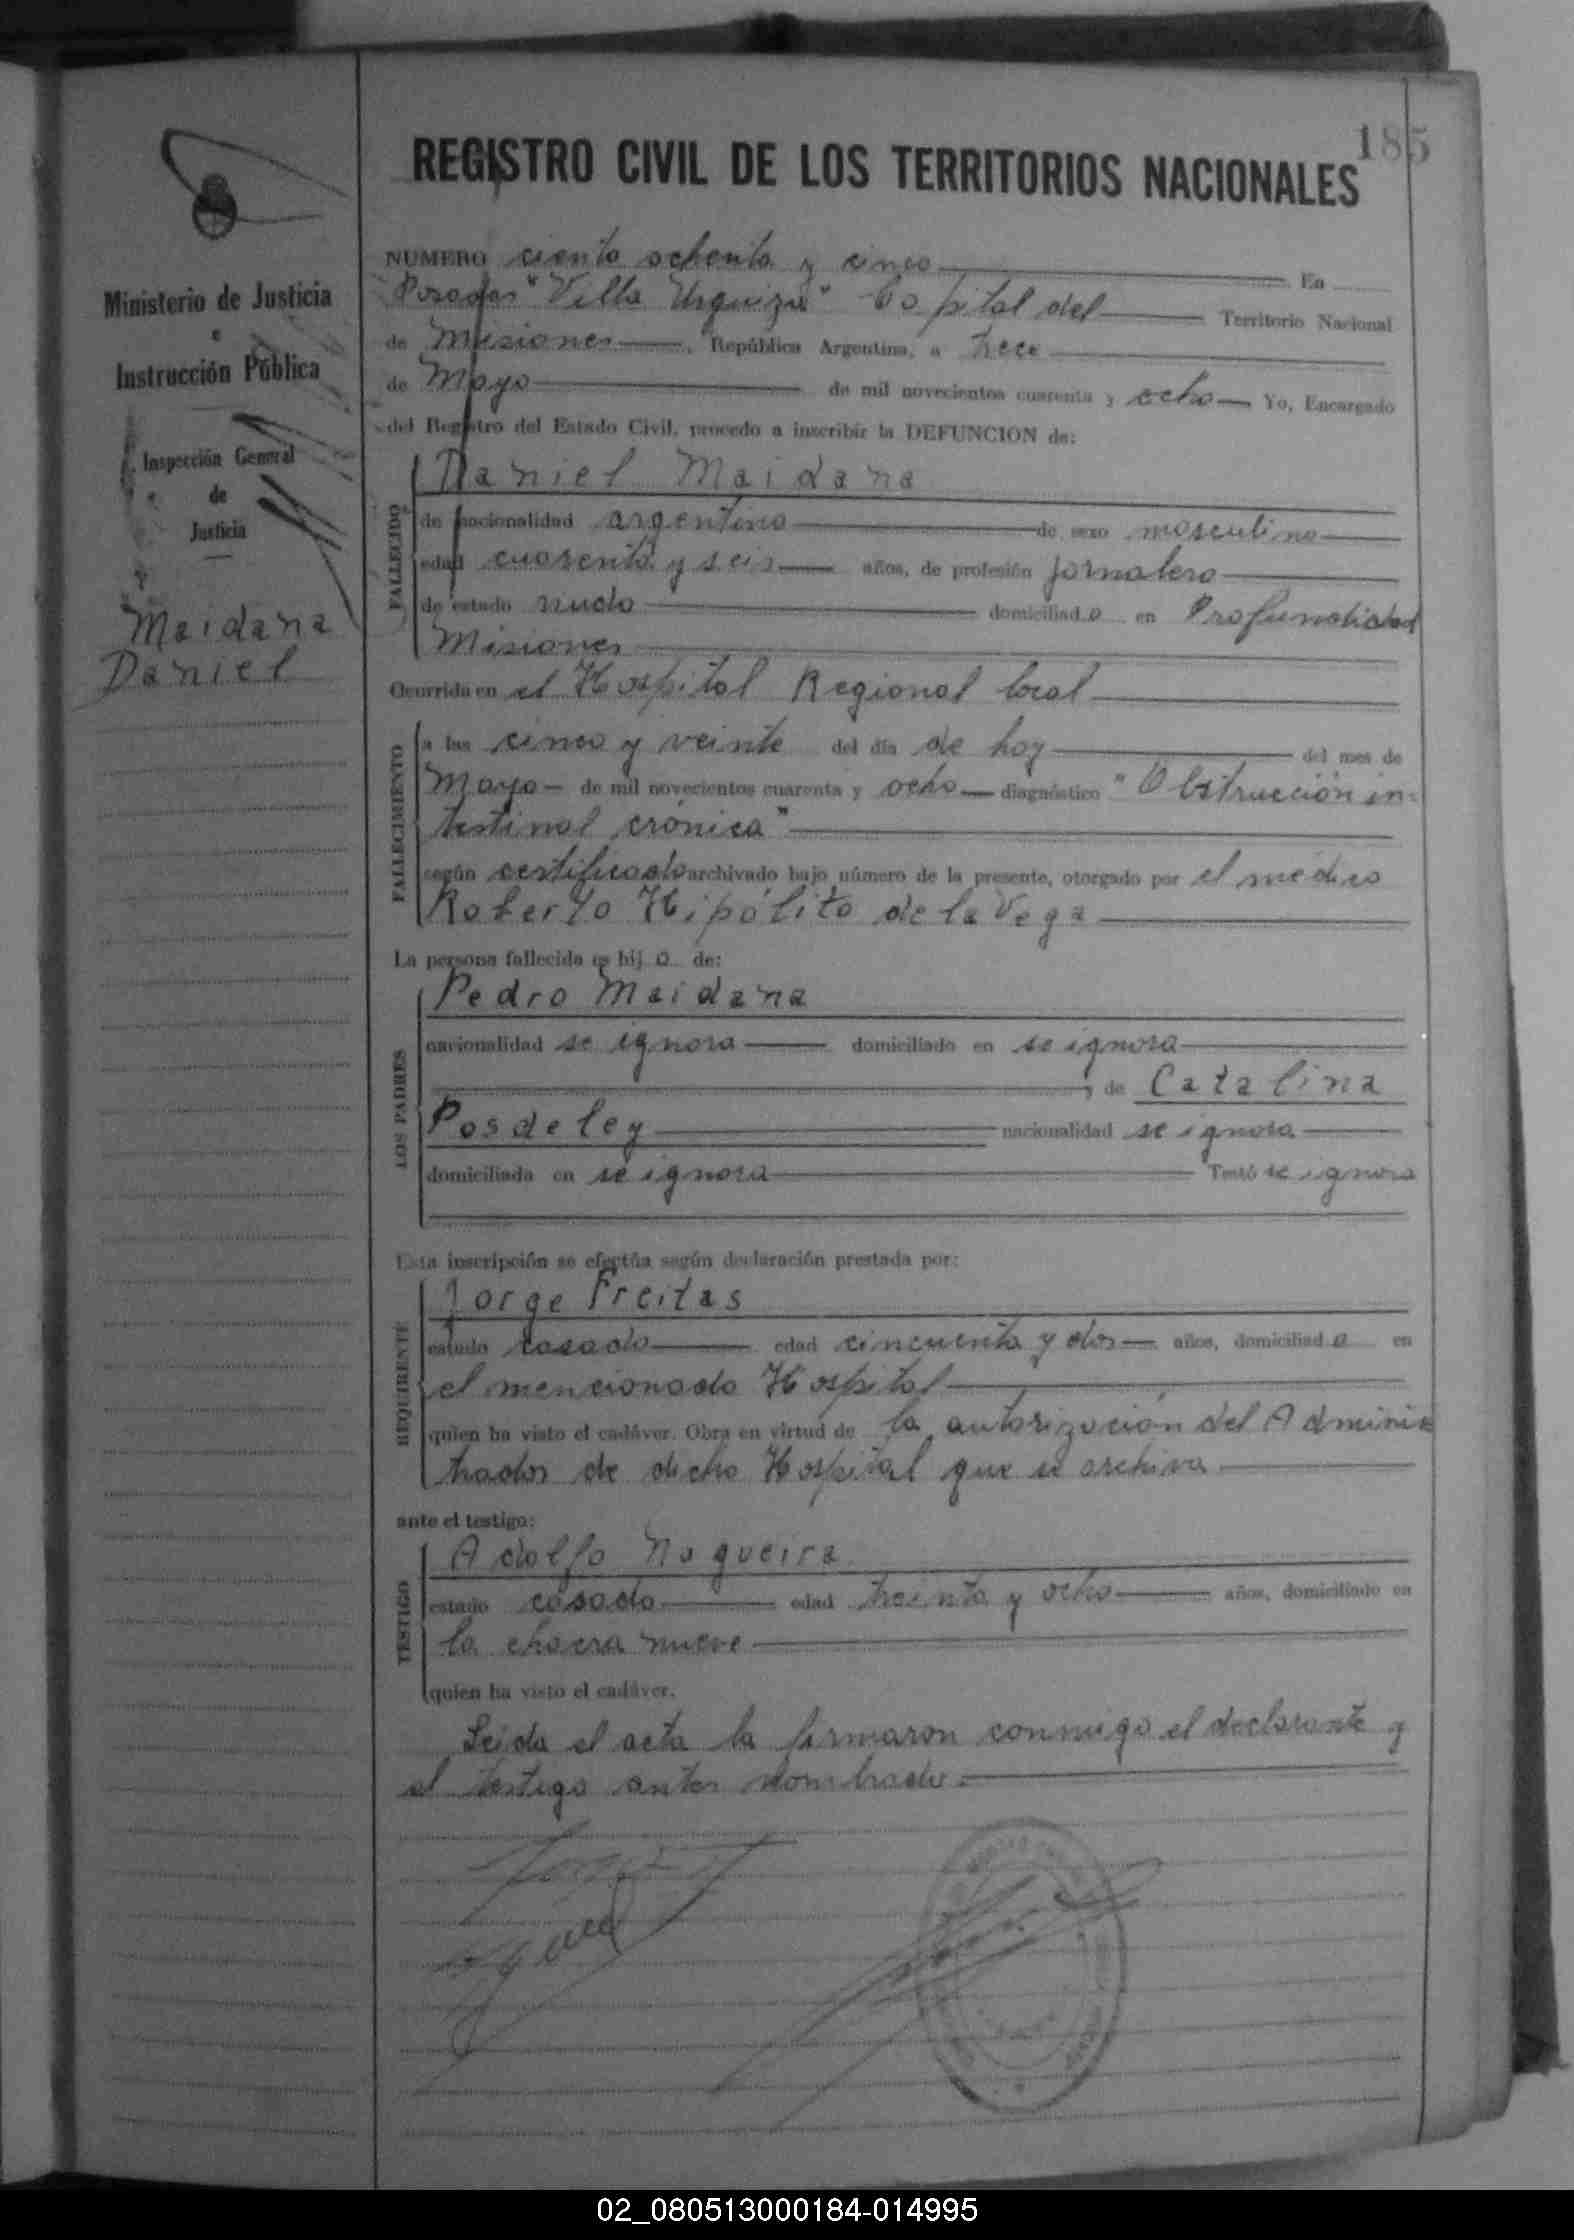 185
REGISTRO CIVIL DE LOS TERRITORIOS NACIONALES
Ministerio de Justicia
e
Instrucción Pública
Inspección General
de
Justicia
Maidana
Daniel
NUMERO ciento ochenta y cinco En
Posadas "Villa Urquiza" Capital del Territorio Nacional
de Misiones, República Argentina, a trece
de Mayo de mil novecientos cuarenta y ocho Yo, Encargado
del Registro del Estado Civil, procedo a inscribir la DEFUNCION de:
FALLECIDO
Daniel Maidana
de nacionalidad argentino de sexo masculino
edad cuarenta y seis años, de profesión jornalero
de estado domiciliado en Profundidad
Misiones
Ocurrida en el Hospital Regional local
FALLECIMIENTO
a las cinco y veinte del día de hoy del mes de
Mayo de mil novecientos cuarenta y ocho diagnóstico "Obstrucción in-
testinal crónica"
según certificado archivado bajo número de la presente, otorgado por el médico
Roberto Hipólito de la Vega
La persona fallecida es hijo de:
LOS PADRES
Pedro Maidana
nacionalidad se ignora domiciliado en se ignora
y de Catalina
Posdeley nacionalidad se ignora
domiciliada en se ignora Testó se ignora
Esta inscripción se efectúa según declaración prestada por:
REQUIRENTE
Jorge Freitas
estado casado edad cincuenta y dos años, domiciliado en
el mencionado Hospital
quien ha visto el cadáver. Obra en virtud de la autorización del Adminis
trador de dicho Hospital que se archiva
ante el testigo:
TESTIGO
Adolfo Nogueira
estado casado edad treinta y ocho años, domiciliado en
la chacra nueve
quien ha visto el cadáver.
Leida el acta la firmaron conmigo el declarante y
el testigo antes nombrado.
02_080513000184-014995